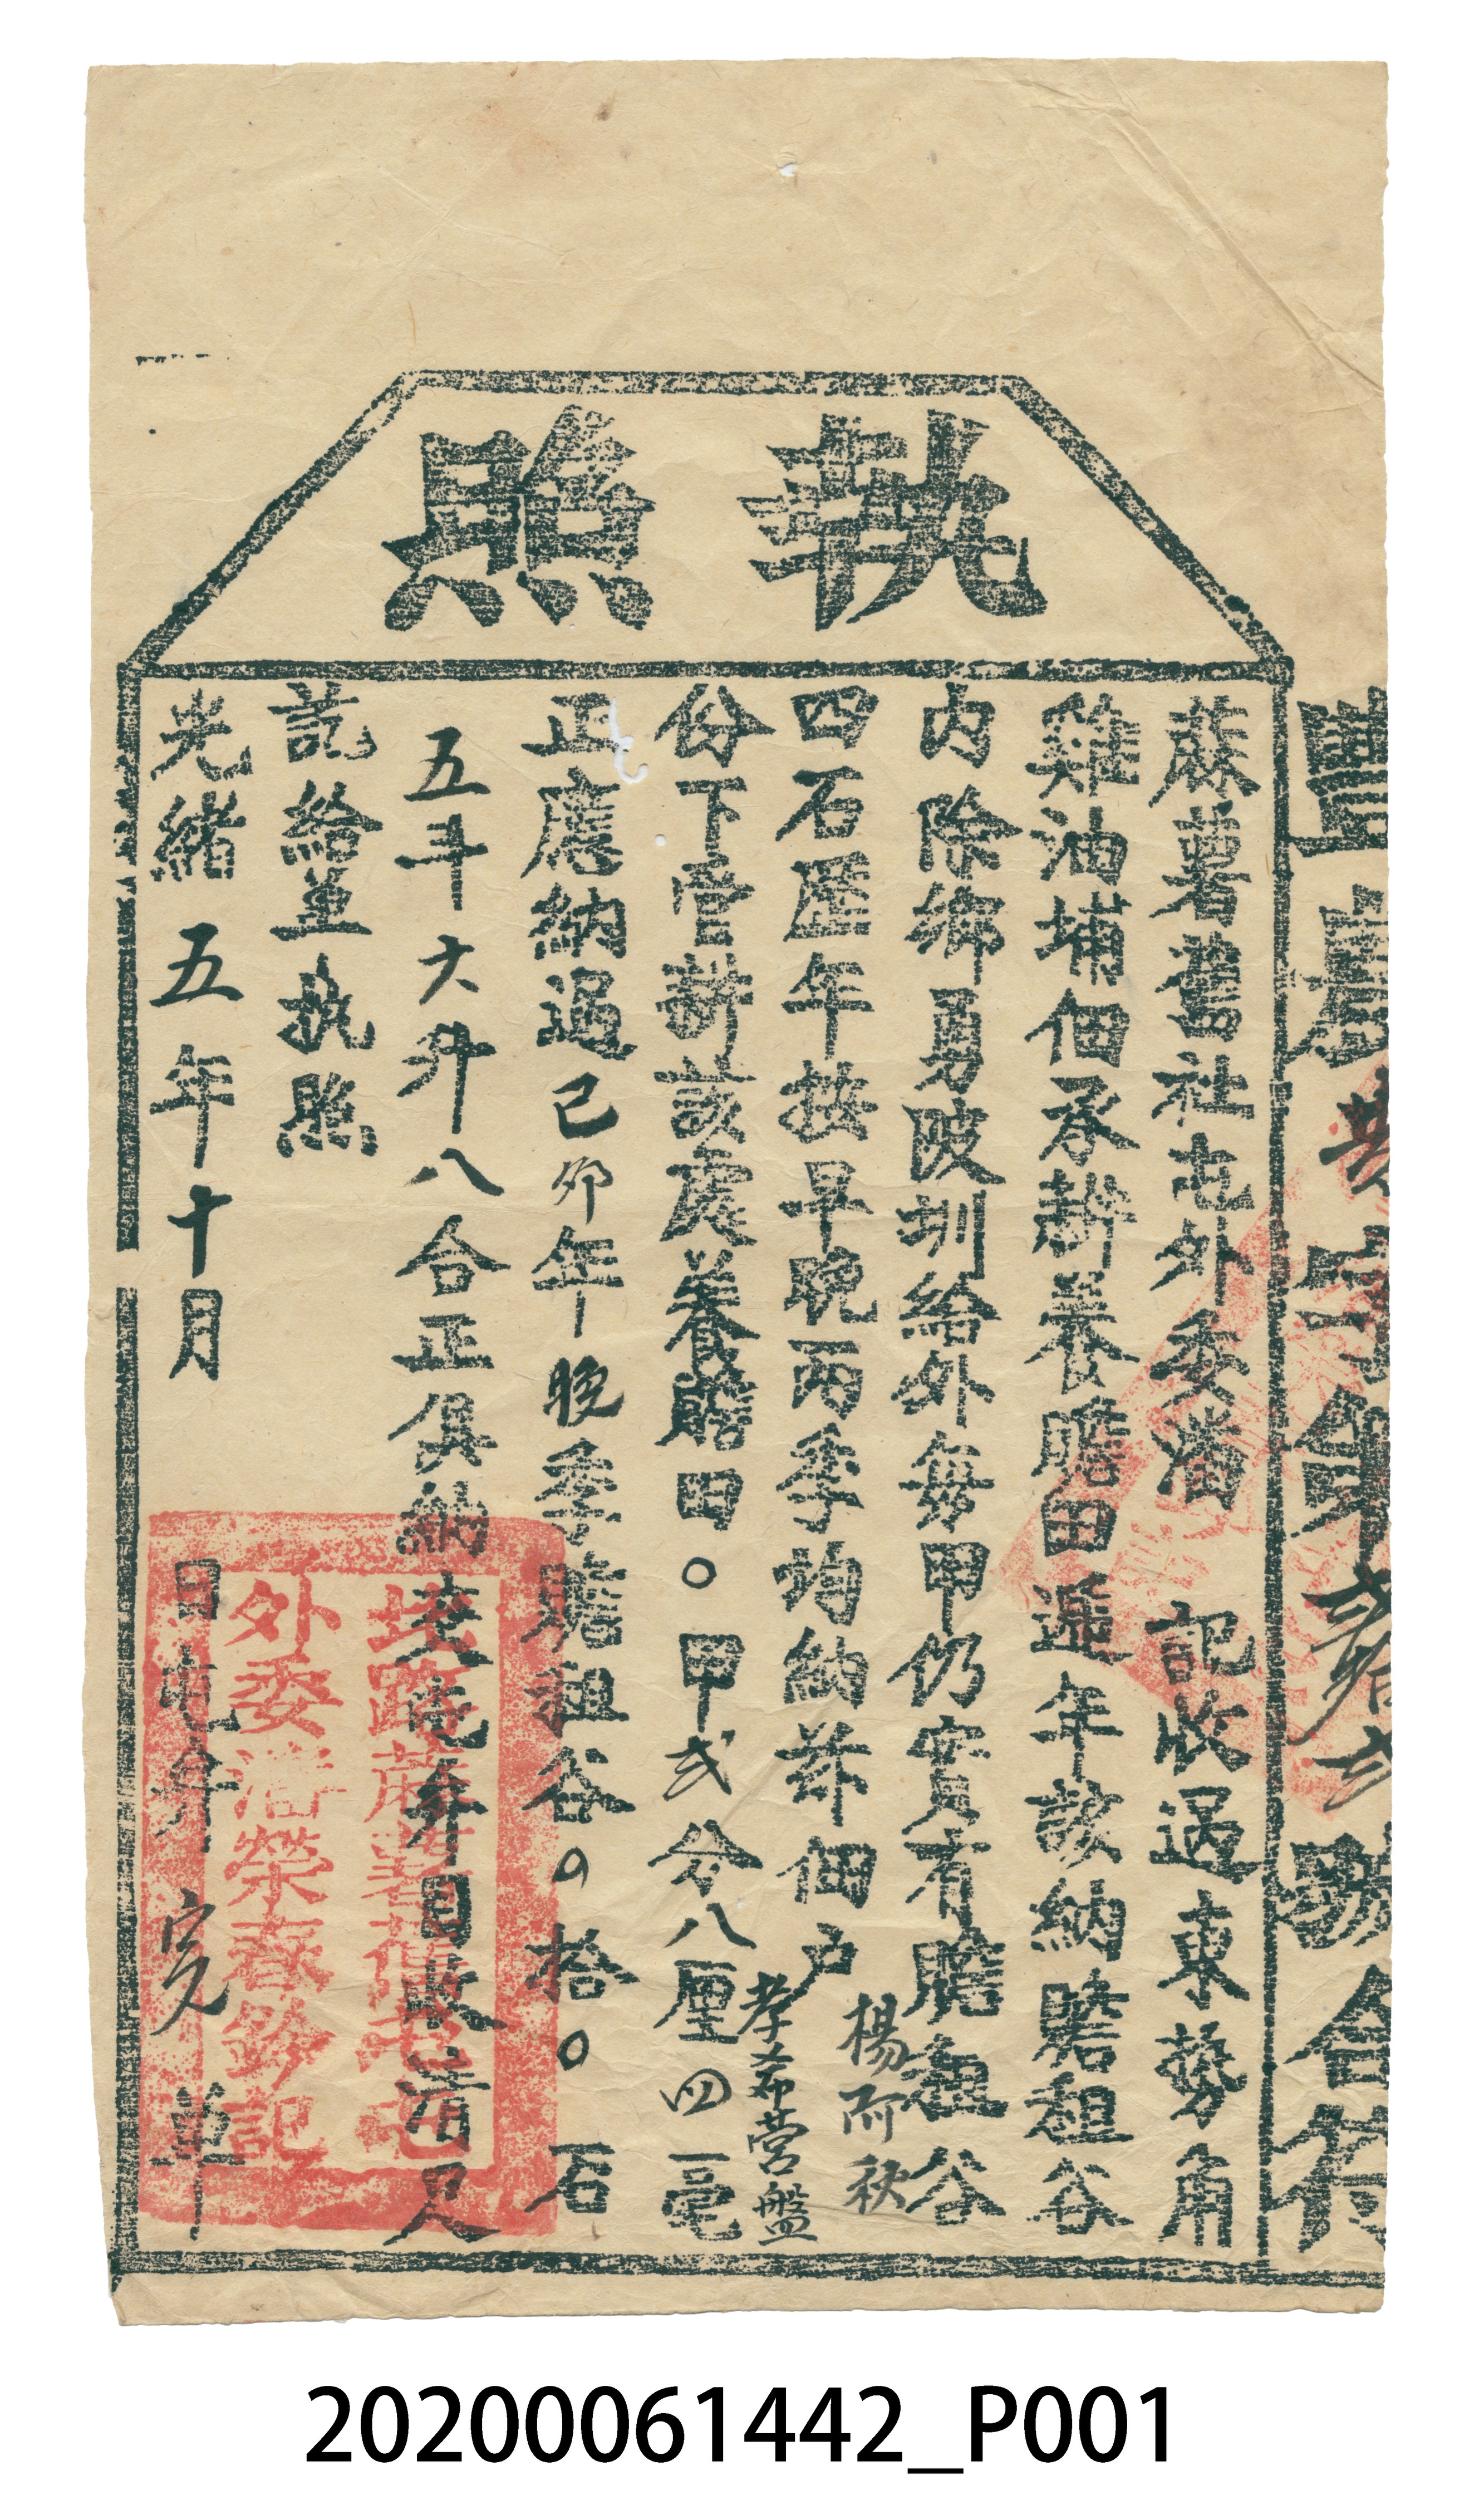 執照
豐農  字第貳拾弍號合符
蔴薯舊社屯外委潘 記收過東勢角
雞油埔佃承耕養贍田遞年該納贍租谷
內除鄉勇陂圳給外每甲仍實有贍租谷
四石歷年按早晚兩季均納茲佃户楊而秋
孝希營盤
份下管耕該處養贍田〇甲弍分八厘四毫
正應納過己卯年晚季贍租谷〇拾〇石
五斗六升八合正俱納交屯弁目收清足
訖給並执照
光緒五年十月 日屯弁 完 單
外委潘榮春鈐記
20200061442_P001